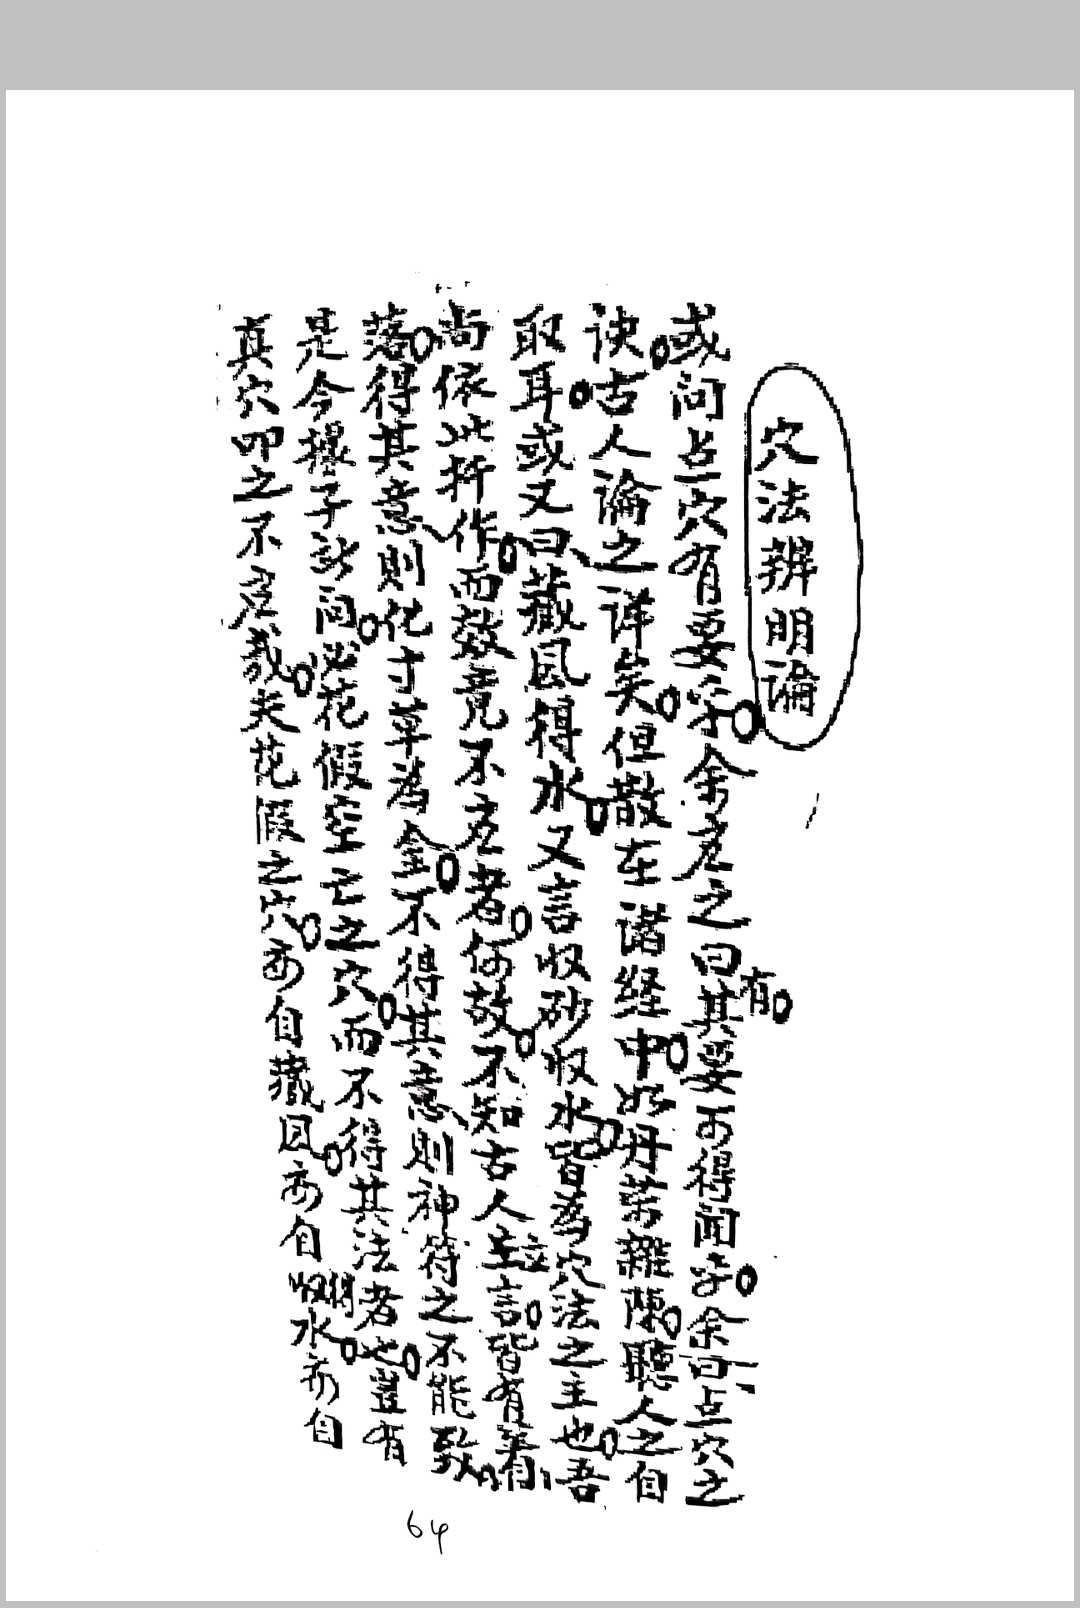 穴法辨明論
或问点穴有要乎余应之曰有其要可得闻乎余曰点穴之
诀古人論之详矣但散在諸经中如丹药雜陳聽人之自
取耳或又曰藏风得水又言收砂收水皆為穴法之主也吾
尚依此扦作而效竟不应者何故不知古人立言皆有着
落得其意则化寸草為金不得其意则神符之不能致
是今穆子诉问必花假空亡之穴而不得其法者也豈有
真穴叩之不应哉夫花假之穴亦自藏风亦自收得水亦自
64